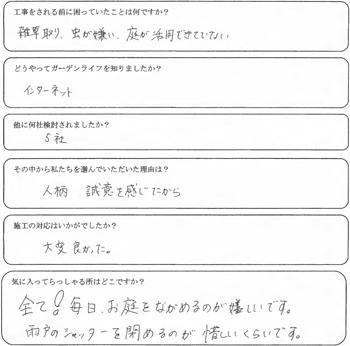 工事をされる前に困っていたことは何ですか？
雑草取り、虫が嫌い、庭が活用できていない
どうやってガーデンライフを知りましたか？
インターネット
他に何社検討されましたか？
5社
その中から私たちを選んでいただいた理由は？
人柄 誠意を感じたから
施工の対応はいかがでしたか？
大変良かった。
気に入ってらっしゃる所はどこですか？
全て！毎日、お庭をながめるのが嬉しいです。
雨戸のシャッターを閉めるのが惜しいくらいです。